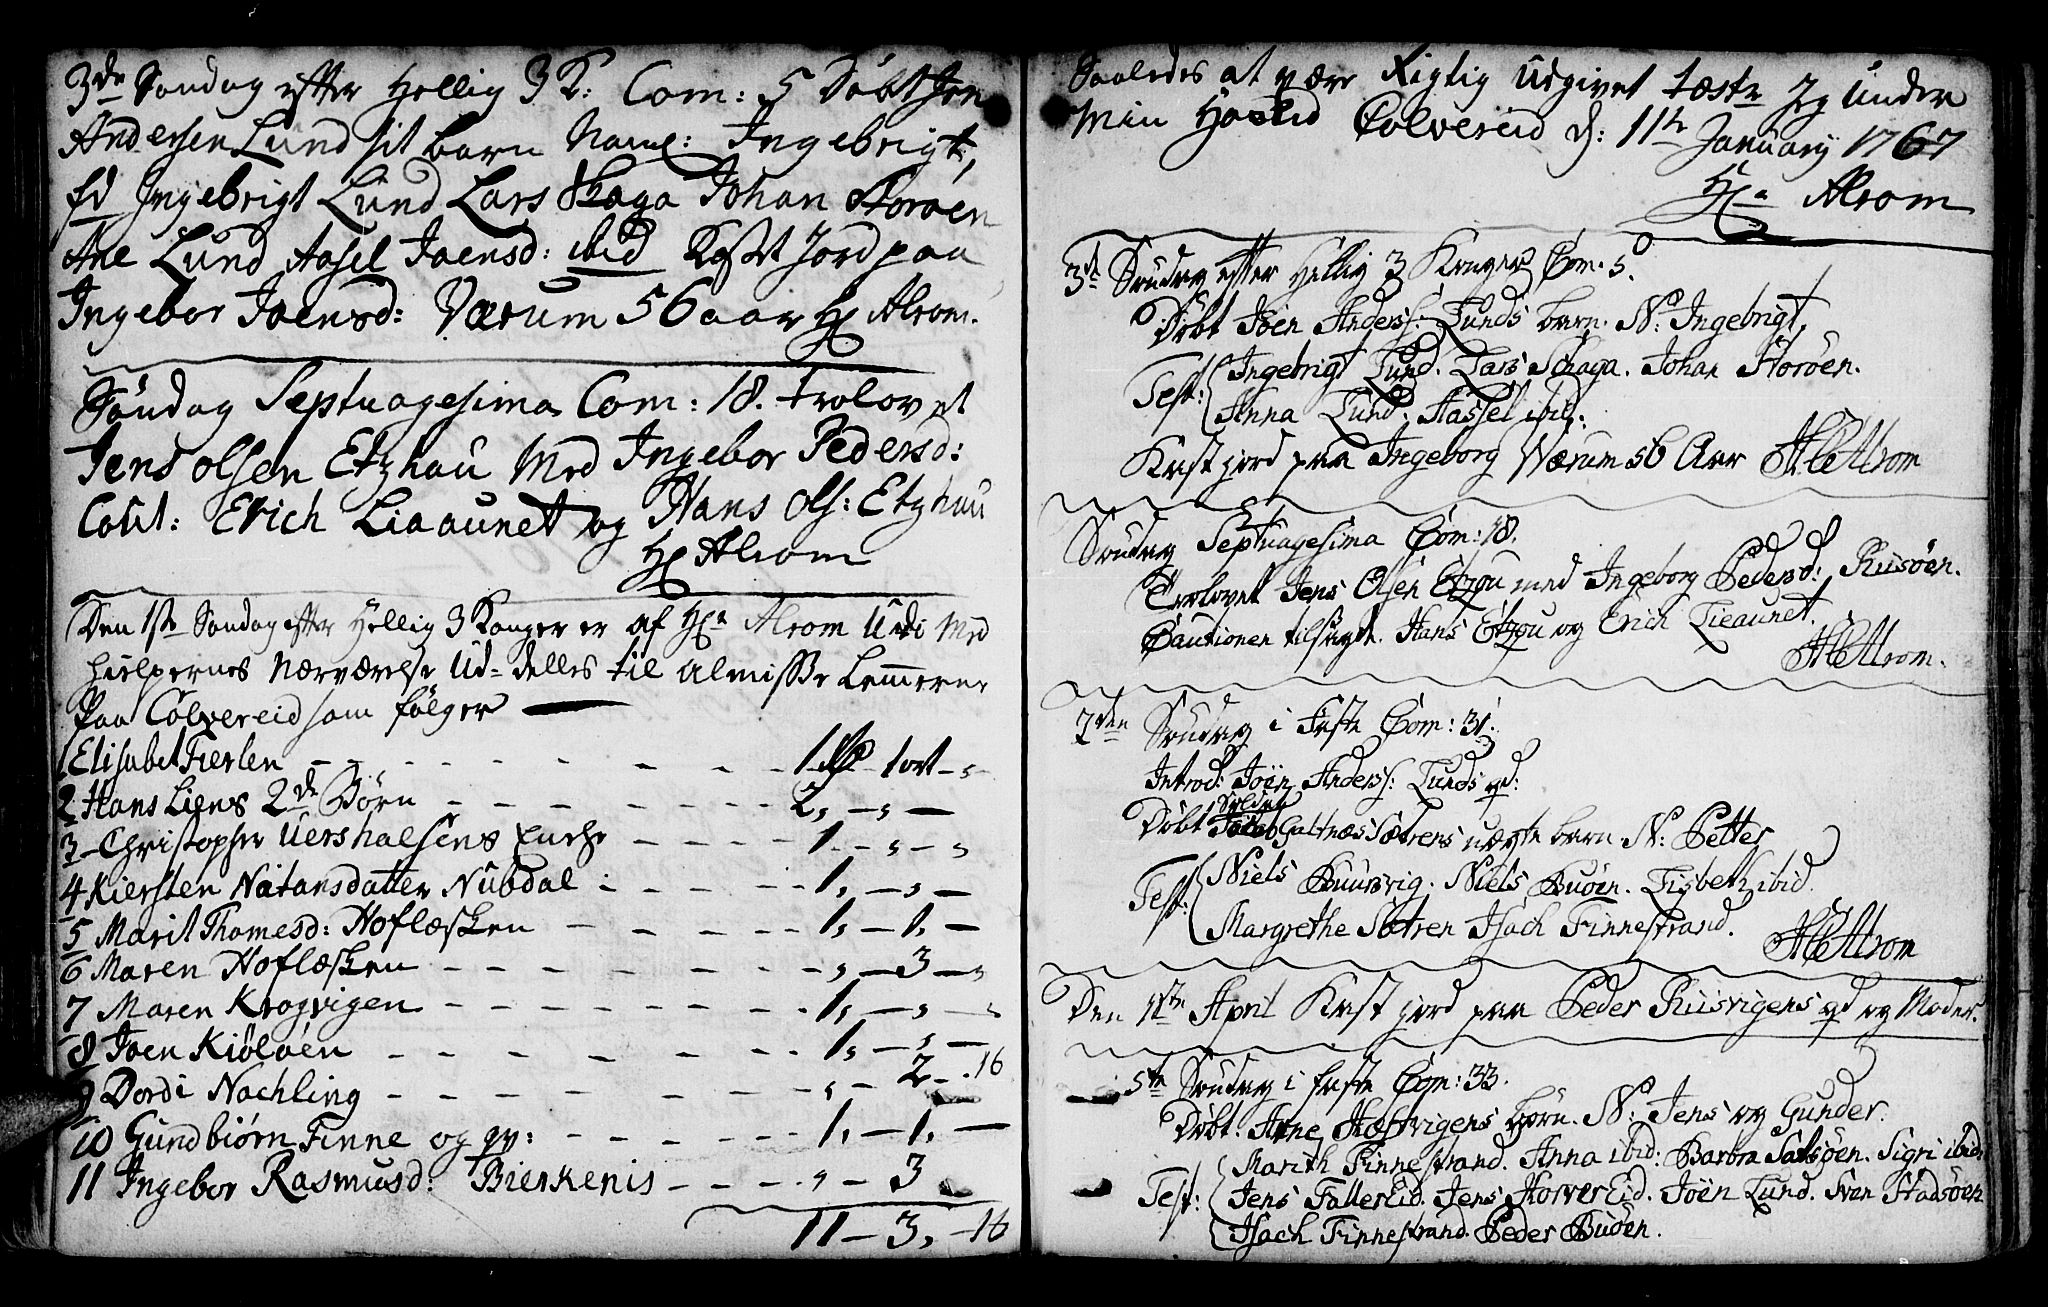 3de Søndag efter Hellig 3 K: Com: 5 Døbt Joen
Andersen Lund sit barn Naml: Ingebrigt,
fd Ingebrigt Lund Lars Skaga Johan Storøen
Ane Lund Aasel Joensd: ibid Kast Jord paa
Ingebor Joensd: Værum 56 aar HC Alrom.
Søndag Septuagesima Com: 18. trolovet
Jens Olsen Etzhau Med Ingebor Pedersd:
Caut: Erich Liaaunet og Hans Ols: Etzhau
HC Alrom
Den 1ste Søndag efter Hellig 3 Konger er af Hr Alrom Udi Med
hielpernes Nærværelse Ud-delles til Almisse Lemmerne
Paa Colvereid som følger
1 Elisabet Fierlen - - - - 1 - 1 ort -
2 Hans Liens 2de Børn - - - - 2, - , -
3 - Christopher Uershalsens Enche - - - - 1 - , - ,
4 Kiersten Natansdatter Nubdal - - - - 1, - , -
5 Marit Thomesd: Hoflæsken - - - - 1, - 1, -
6 Maren Hoflæsken - - - - , - 3 - ,
7 Maren Krogvigen - - - - 1, - , - ,
8 Joen Kiøløen - - - - 1, - , -
9 Dordi Nachling - - - - , - 2 - 16
10 Gundbiørn Finne og qv: - - - - 1, - 1, -
11 Ingebor Rasmusd: Bierkenis - - - - , - 3
11 - 3, - 16
Saaledes at være Rigtig Udgivet tæster Jeg Under
Min Haand Colvereid d: 11te January 1767
HC Alrom
3de Søndag efter Hellig 3 Konger Com. 5.
Døbt Joen Anders: Lunds barn. N: Ingebrigt,
Test: Ingebrigt Lund. Lars Schaga. Johan Storøen.
Anna Lund. Aassel ibid:
Kast jord paa Ingeborg Wærum 56 Aar HC Alrom
Søndag Septuagesima Com: 18.
Trolovet Jens Olsen Etzou med Ingeborg Pedersd: Riisøen.
Cautionen tilsagde. Hans Etzou og Erich Lieaunet.
HC Alrom.
2den Søndag i Faste Com: 31.
Introd: Joen Anderss: Lunds qd:
Døbt Soldat Jacob Galtnæs Sætrens uægte barn N: Petter
Test: Niels Buurvig. Niels Buøen. Lisbeth ibid.
Margrethe Sætren Isach Finnestrand.
HC Alrom
Den 1ste April Kast jord paa Peder Riisvigens qd og Moder.
5te Søndag i faste Com: 33.
Døbt. Arne Hæstvigens børn. N: Jens og Gunder.
Marith Finnestrand. Anna ibid: Barbra Satsøen. Sigri ibid
Test: Jens FallerEid. Jens KolverEid. Joen Lund. Sven Stadsøen
Isach Finnestrand. Peder Buøen.